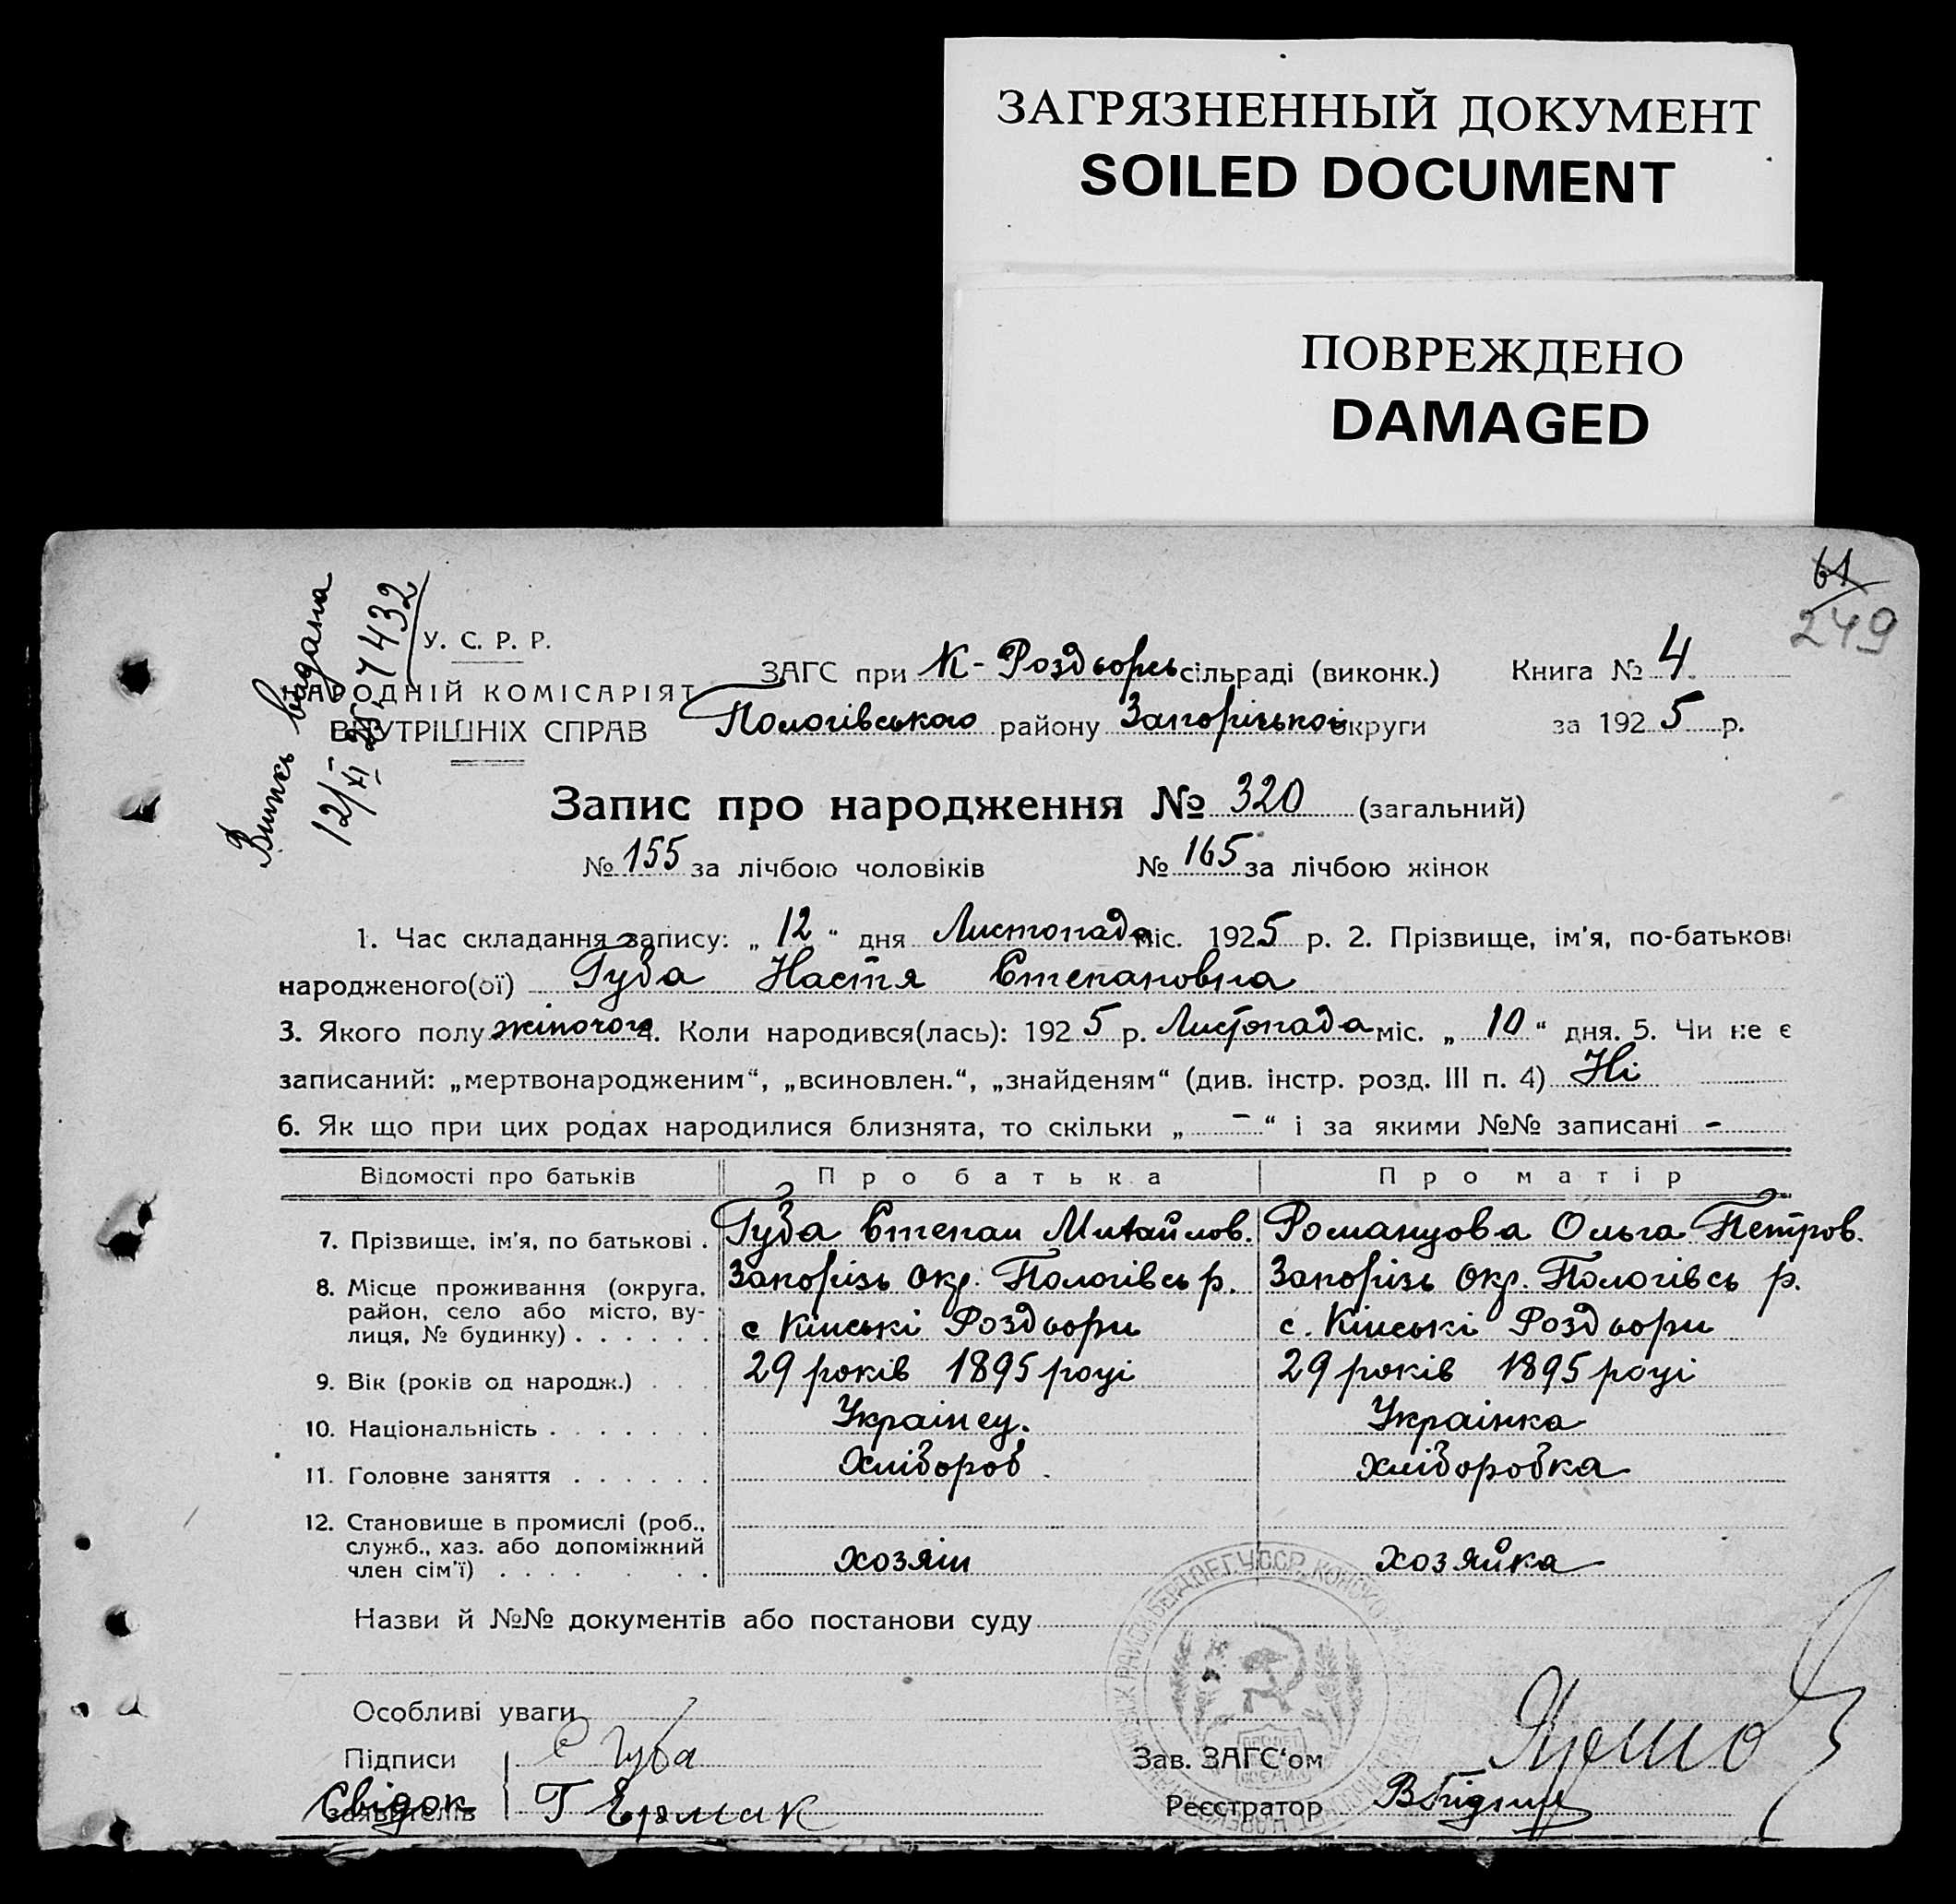 ЗАГРЯЗНЕННЫЙ ДОКУМЕНТ
SOILED DOCUMENT
ПОВРЕЖДЕНО
DAMAGED
61
249
Випись видана
12/XI 25 7432
У. С. Р. Р.
НАРОДНІЙ КОМІСАРІЯТ
ВНУТРІШНІХ СПРАВ
ЗАГС при К-Роздорсь сільраді (виконк.) Книга № 4
Пологівського району Запорізької округи за 1925 р.
Запис про народження № 320 (загальний)
№ 155 за лічбою чоловіків № 165 за лічбою жінок
1. Час складання запису: „ 12 “ дня Листопада міс. 1925 р. 2. Прізвище, ім'я, по-батькові
народженого(ої) Губа Настя Степановна
3. Якого полу жіночого 4. Коли народився(лась): 1925 р. Листопада міс. „ 10 “ дня. 5. Чи не є
записаний: „мертвонародженим“, „всиновлен.“, „знайденям“ (див. інстр. розд. III п. 4) Ні
6. Як що при цих родах народилися близнята, то скільки „ – “ і за якими №№ записані –
Відомості про батьків Про батька Про матір
7. Прізвище, ім'я, по батькові . Губа Степан Михайлов. Романцова Ольга Петров.
8. Місце проживання (округа, Запорізь Окр. Пологівсь р. Запорізь Окр. Пологівсь р.
район, село або місто, ву-
лиця, № будинку) . . . . . . с Кінські Роздори с. Кінські Роздори
9. Вік (років од народж.) . . . 29 років 1895 році 29 років 1895 році
10. Національність . . . . . . . Українец. Українка
11. Головне заняття . . . . . . Хлібороб . хліборобка
12. Становище в промислі (роб.,
служб., хаз. або допоміжний
член сім'ї) . . . . . . . хозяін хозяйка
Назви й №№ документів або постанови суду
Особливі уваги
Підписи С Губа Зав. ЗАГС‘ом
Свідок
заявителів Г Ермак Реєстратор